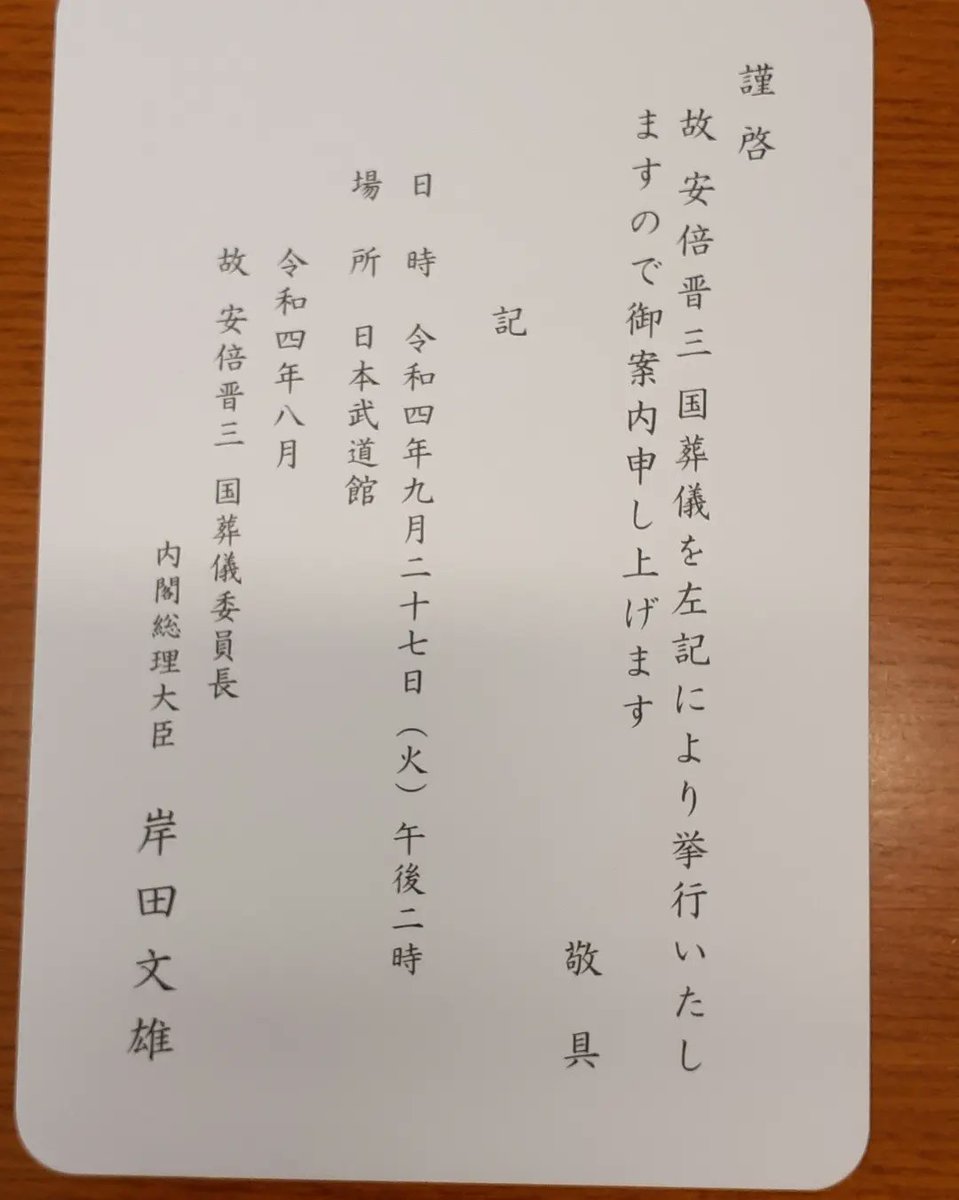 謹啓
故 安倍晋三 国葬儀を左記により挙行いたし
ますので御案内申し上げます
敬具
記
日時 令和四年九月二十七日（火）午後二時
場所 日本武道館
令和四年八月
故 安倍晋三 国葬儀委員長
内閣総理大臣 岸田文雄